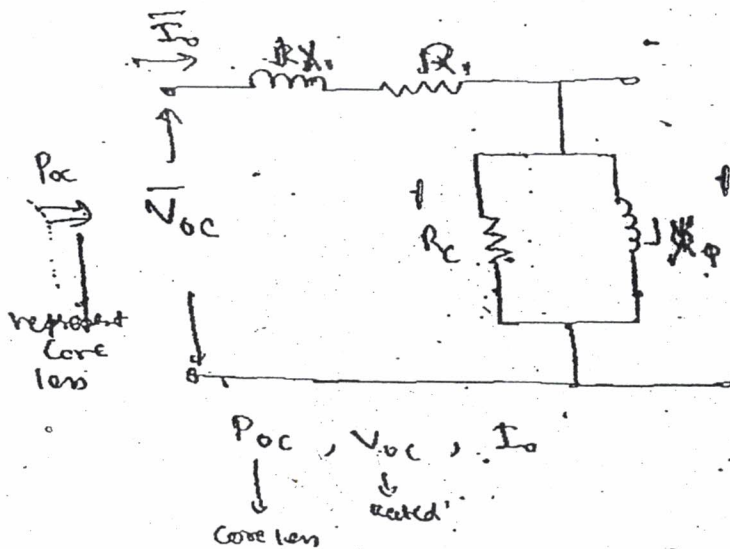 I₀
R₁
P_oc
V_oc
R_c
represent
core
less
P_oc , V_oc , I₀
rated
core less